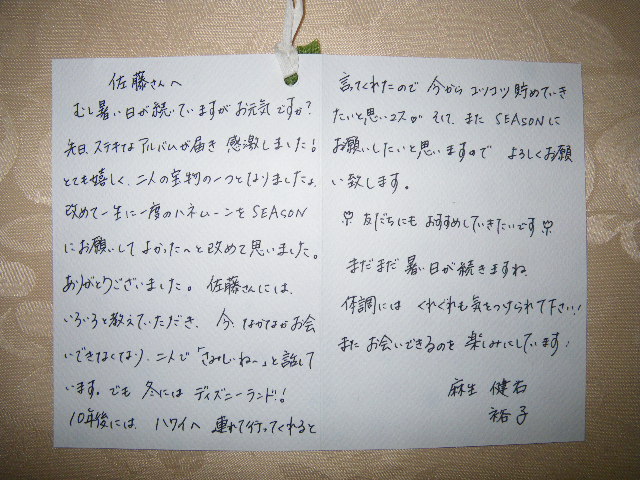 佐藤さんへ
むし暑い日が続いていますがお元気ですか?
先日、ステキなアルバムが届き 感激しました!
とても嬉しく、二人の宝物の一つとなりましたよ。
改めて一生に一度のハネムーンをSEASON
にお願いして よかったへと改めて思いました。
ありがとうございました。佐藤さんには、
いろいろと教えていただき、今、なかなかお会
いできなくなり、二人で「さみしいねー」と話して
います。でも 冬には ディズニーランド!
10年後には、ハワイへ 連れて行ってくれると
言ってくれたので 今から コツコツ貯めていき
たいと思いマスが そして、また SEASONに
お願いしたいと思いますので よろしくお願
い致します。
友だちにも おすすめしていきたいです
まだまだ 暑い日が続きますね。
体調には くれぐれも気をつけられて下さい!
また お会いできるのを 楽しみにしています!
麻生 健右
裕子